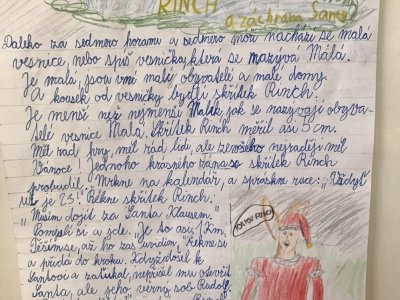 RINCH
a záchrana Santy
Daleko za sedmero horami a sedmero moři nachází se malá
vesnice, nebo spíš vesnička, která se nazývá Málá.
Je malá, jsou v ní malí obyvatelé a malé domy.
A kousek od vesničky bydlí skřítek Rinch.
Je menší než nejmenší Malík jak se nazývají obyva-
telé vesnice Malá. Skřítek Rinch měřil asi 5 cm.
Měl rád hry, měl rád lidi, ale ze všeho nejraději měl
Vánoce! Jednoho krásného rána se skřítek Rinch
probudil. Mrkne na kalendář, a spráskne ruce: „Vždyť
už je 25!" Řekne skřítek Rinch.
„Musím dojít za Santa Klausem."
Pomyslí si a jde. „Je to asi 1 km.
Těším se, až ho zas uvidím," řekne si
a přidá do kroku. Když došel k
Santovi a zaťukal, nepřišel mu otevřít
Santa, ale jeho věrný sob Rudolf.